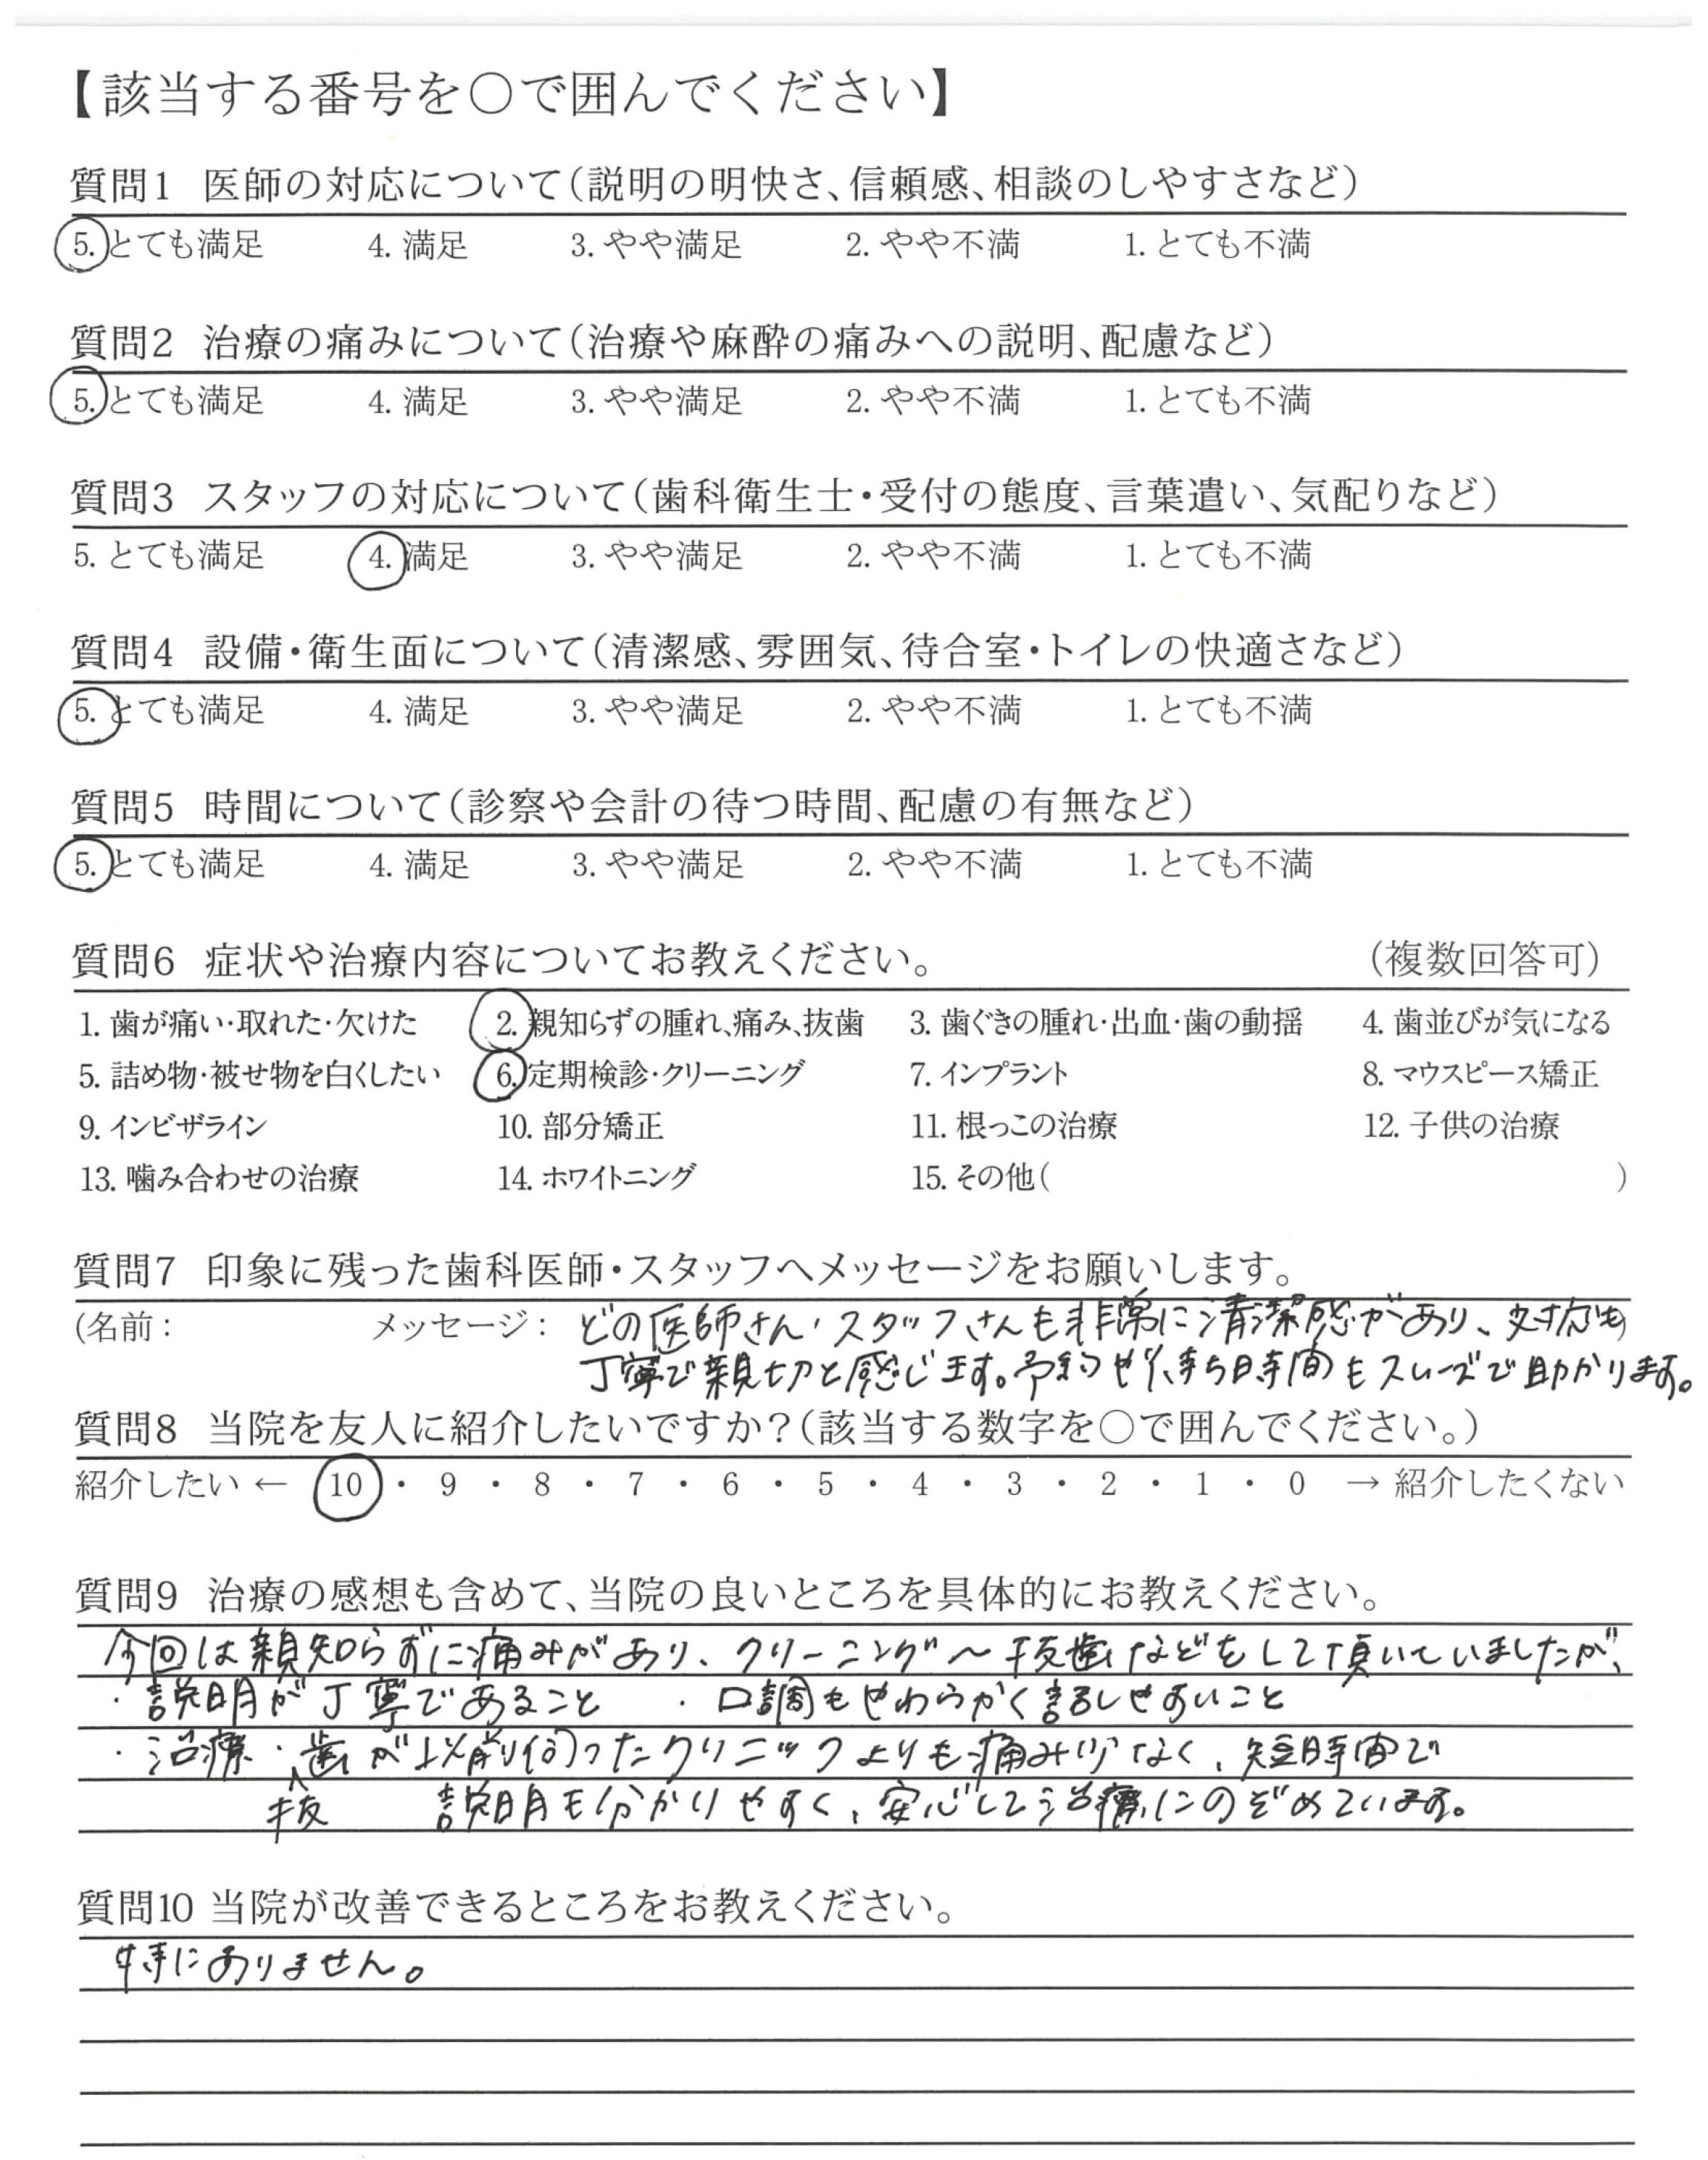 【該当する番号を○で囲んでください】
質問1 医師の対応について(説明の明快さ、信頼感、相談のしやすさなど)
5. とても満足 4. 満足 3. やや満足 2. やや不満 1. とても不満
質問2 治療の痛みについて(治療や麻酔の痛みへの説明、配慮など)
5. とても満足 4. 満足 3. やや満足 2. やや不満 1. とても不満
質問3 スタッフの対応について(歯科衛生士・受付の態度、言葉遣い、気配りなど)
5. とても満足 4. 満足 3. やや満足 2. やや不満 1. とても不満
質問4 設備・衛生面について(清潔感、雰囲気、待合室・トイレの快適さなど)
5. とても満足 4. 満足 3. やや満足 2. やや不満 1. とても不満
質問5 時間について(診察や会計の待つ時間、配慮の有無など)
5. とても満足 4. 満足 3. やや満足 2. やや不満 1. とても不満
質問6 症状や治療内容についてお教えください。 (複数回答可)
1. 歯が痛い・取れた・欠けた 2. 親知らずの腫れ、痛み、抜歯 3. 歯ぐきの腫れ・出血・歯の動揺 4. 歯並びが気になる
5. 詰め物・被せ物を白くしたい 6. 定期検診・クリーニング 7. インプラント 8. マウスピース矯正
9. インビザライン 10. 部分矯正 11. 根っこの治療 12. 子供の治療
13. 噛み合わせの治療 14. ホワイトニング 15. その他( )
質問7 印象に残った歯科医師・スタッフへメッセージをお願いします。
(名前: メッセージ: どの医師さん・スタッフさんも非常に清潔感があり、対応も
丁寧で親切と感じます。予約や待ち時間もスムーズで助かります。
質問8 当院を友人に紹介したいですか?(該当する数字を○で囲んでください。)
紹介したい ← 10 ・ 9 ・ 8 ・ 7 ・ 6 ・ 5 ・ 4 ・ 3 ・ 2 ・ 1 ・ 0 → 紹介したくない
質問9 治療の感想も含めて、当院の良いところを具体的にお教えください。
今回は親知らずに痛みがあり、クリーニング〜抜歯などをして頂いていましたが、
・説明が丁寧であること ・口調もやわらかく話しやすいこと
・治療・歯が以前伺ったクリニックよりも痛み少なく、短時間で
抜 説明も分かりやすく、安心して治療にのぞめています。
質問10 当院が改善できるところをお教えください。
特にありません。